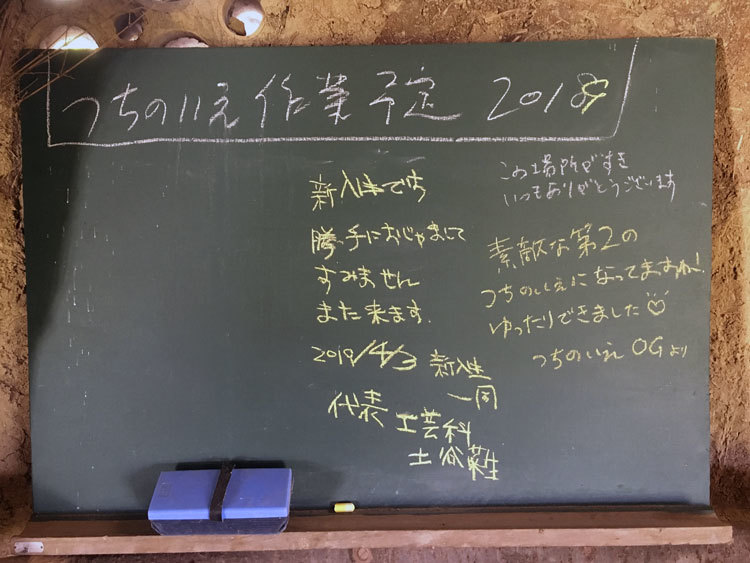 つちのいえ 作業予定 2018
この場所がすき
いつもありがとうございます
新入生でち
勝手におじゃまして
すみません
また来ます.
2019/4/3 新入生
一同
代表 工芸科
土谷
素敵な第2の
つちのいえになってますね!
ゆったりできました
つちのいえ OGより